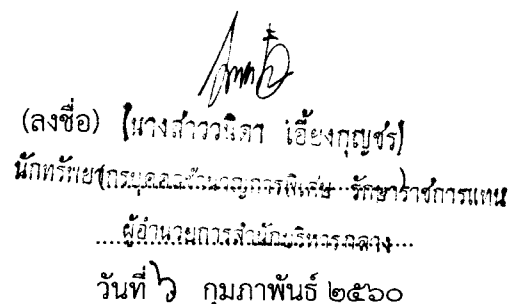 (ลงชื่อ) (นางสาววนิดา เอี้ยงกุญชร)
นักทรัพยากรบุคคลชำนาญการพิเศษ รักษาราชการแทน
ผู้อำนวยการสำนักบริหารกลาง
วันที่ ๖ กุมภาพันธ์ ๒๕๖๐